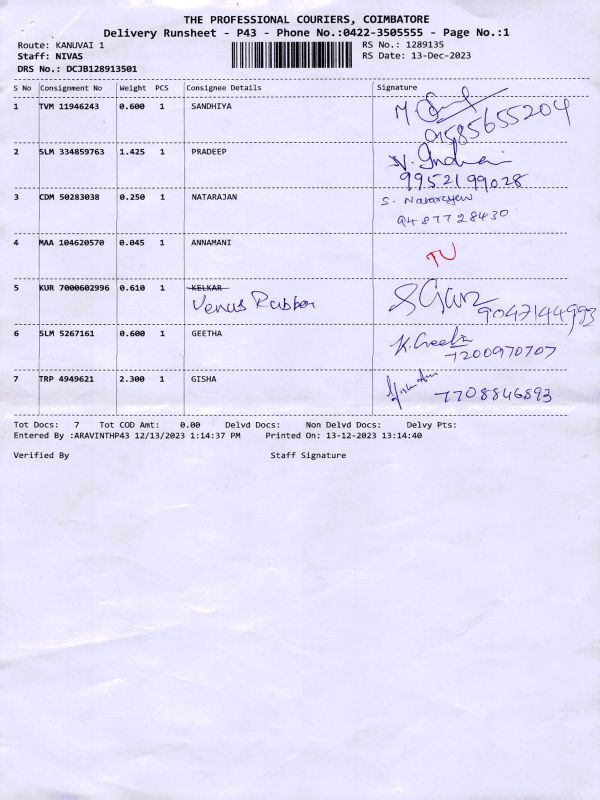 THE PROFESSIONAL COURIERS, COIMBATORE
Delivery Runsheet - P43 - Phone No.:0422-3505555 - Page No.:1
Route: KANUVAI 1 RS No.: 1289135
Staff: NIVAS RS Date: 13-Dec-2023
DRS No.: DCJB128913501
S No Consignment No Weight PCS Consignee Details Signature
1 TVM 11946243 0.600 1 SANDHIYA M
01585655204
2 SLM 334859763 1.425 1 PRADEEP V. Indra
9952199028
3 CDM 50283038 0.250 1 NATARAJAN S. Natarajan
9487728430
4 MAA 104620570 0.045 1 ANNAMANI TU
5 KUR 7000602996 0.610 1 KELKAR
Venus Rubber 9047144993
6 SLM 5267161 0.600 1 GEETHA K. Geetha
7200970707
7 TRP 4949621 2.300 1 GISHA
7708846893
Tot Docs: 7 Tot COD Amt: 0.00 Delvd Docs: Non Delvd Docs: Delvy Pts:
Entered By :ARAVINTHP43 12/13/2023 1:14:37 PM Printed On: 13-12-2023 13:14:40
Verified By Staff Signature